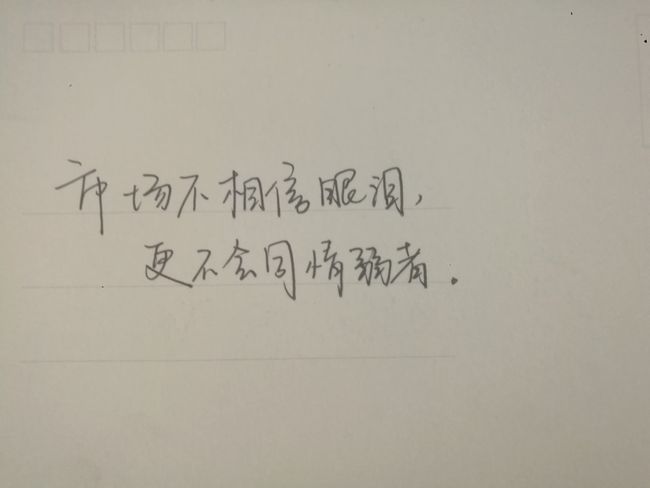 市场不相信眼泪，
更不会同情弱者.